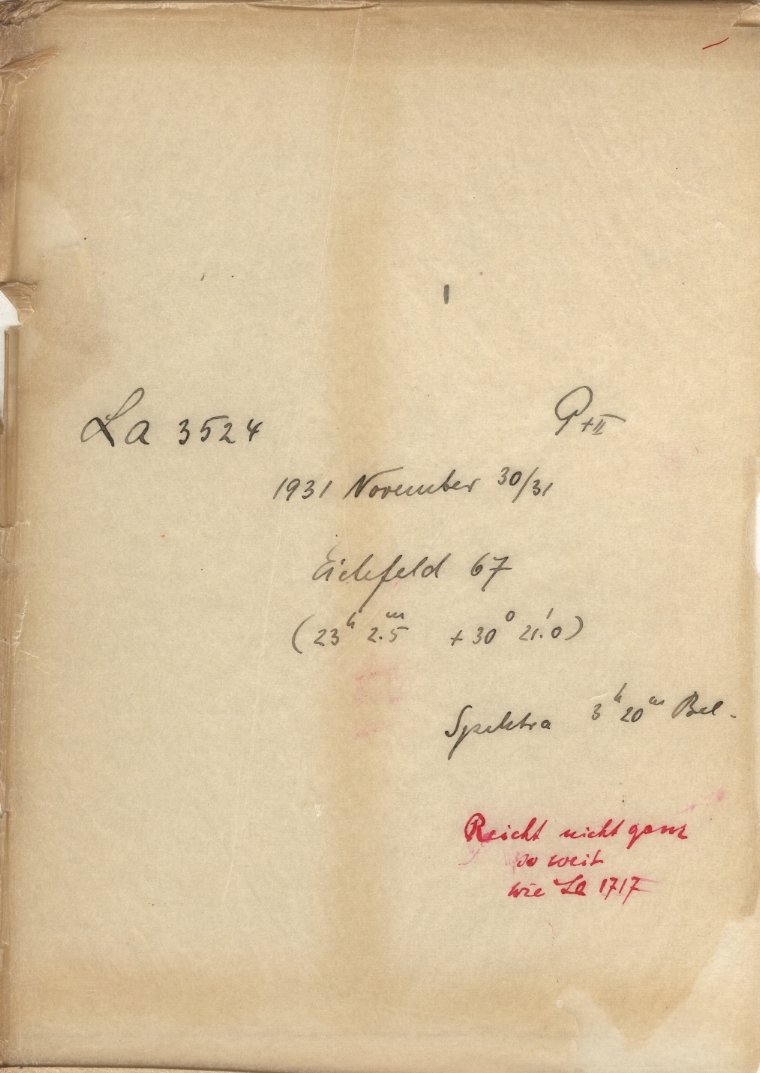 La 3524 P+II
1931 November 30/31
Eichfeld 67
(23h 2m.5 +30° 21'.0)
Spektra 3h 20m Bel.
Reicht nicht ganz
so weit
wie La 1717